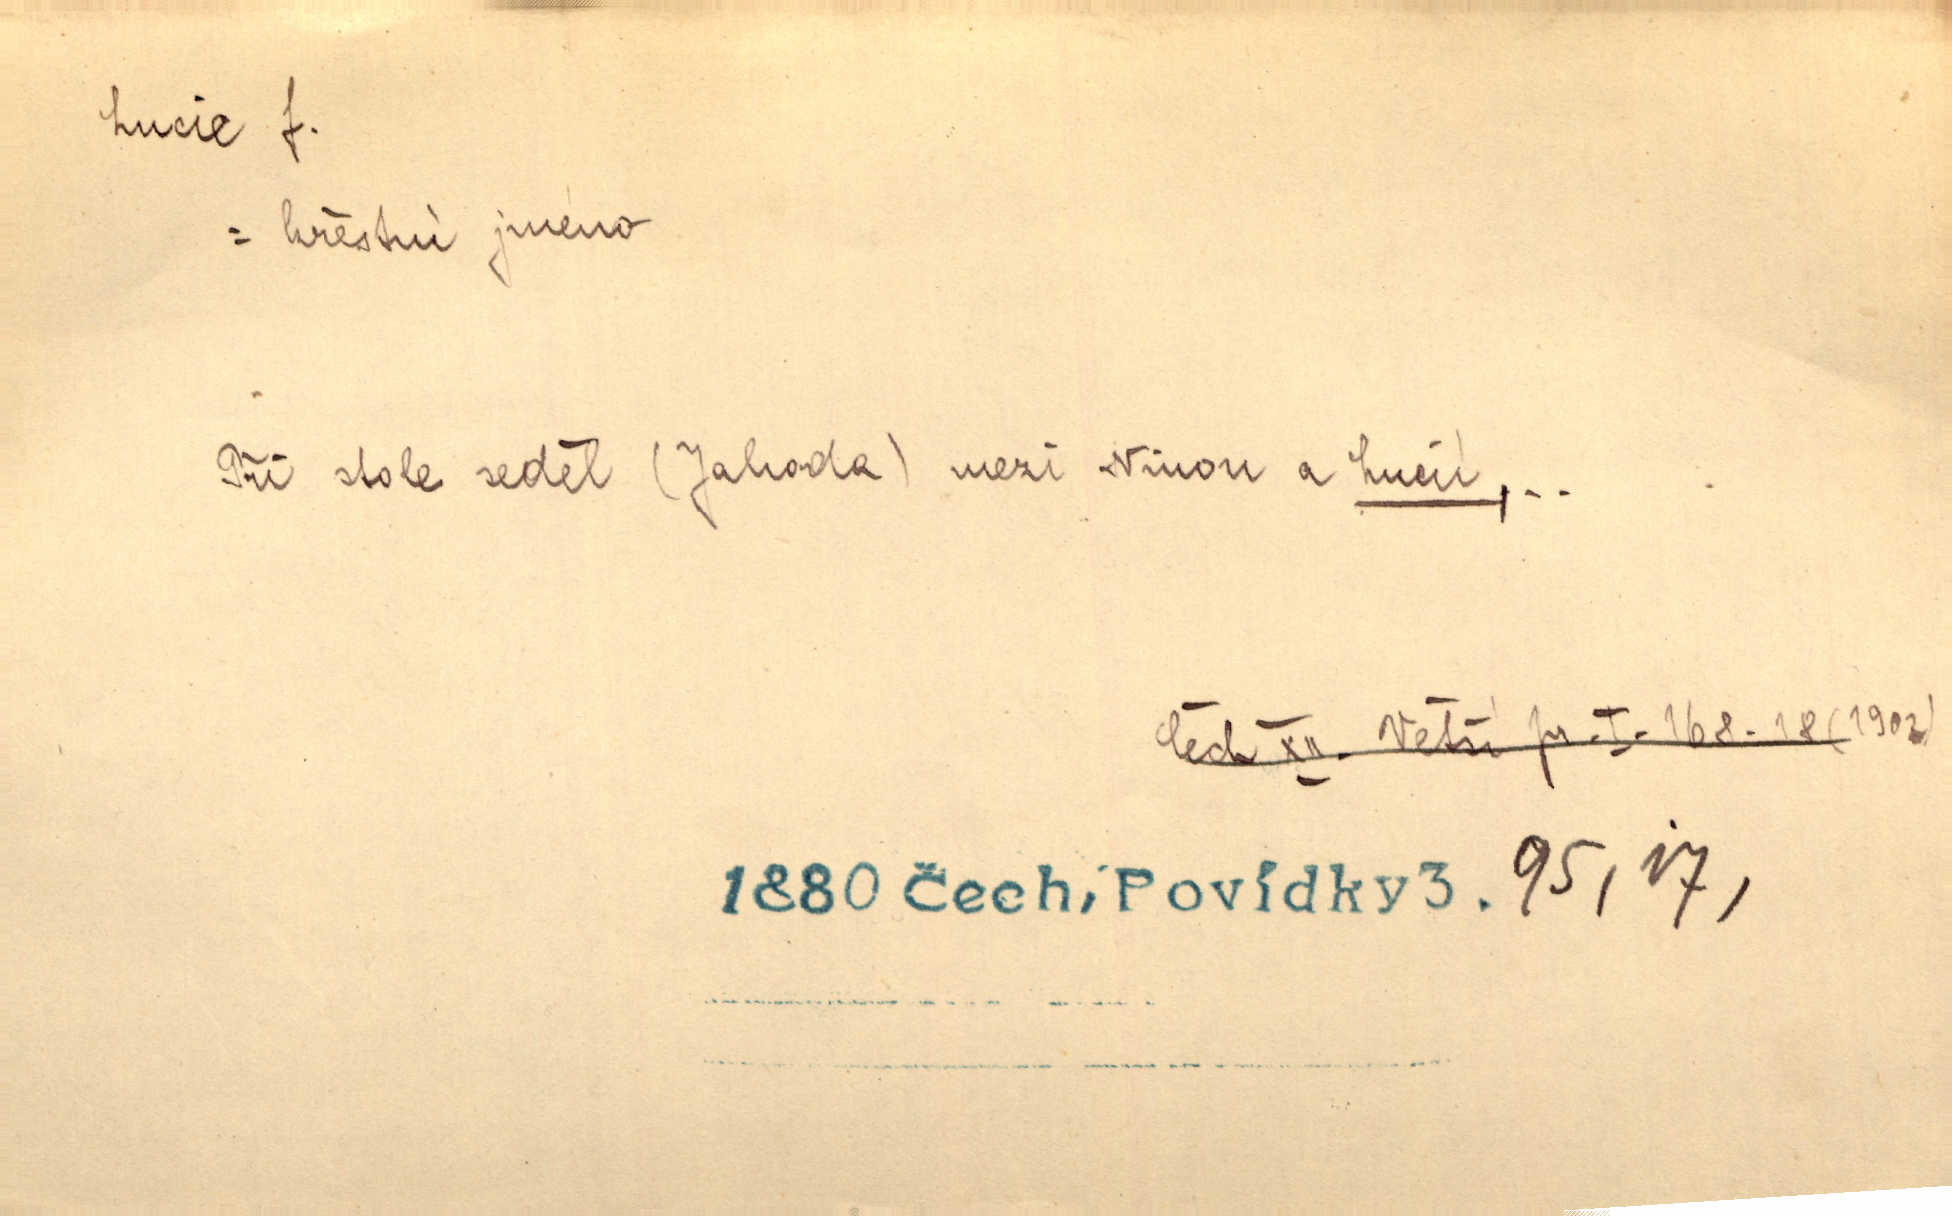 Lucie f.
= křestní jméno
Při stole seděl (Jahoda) mezi Ninou a Lucií,..
Čech XII. Větší pr. I. 168. 18 (1902)
1880 Čech, Povídky 3. 95, 17,